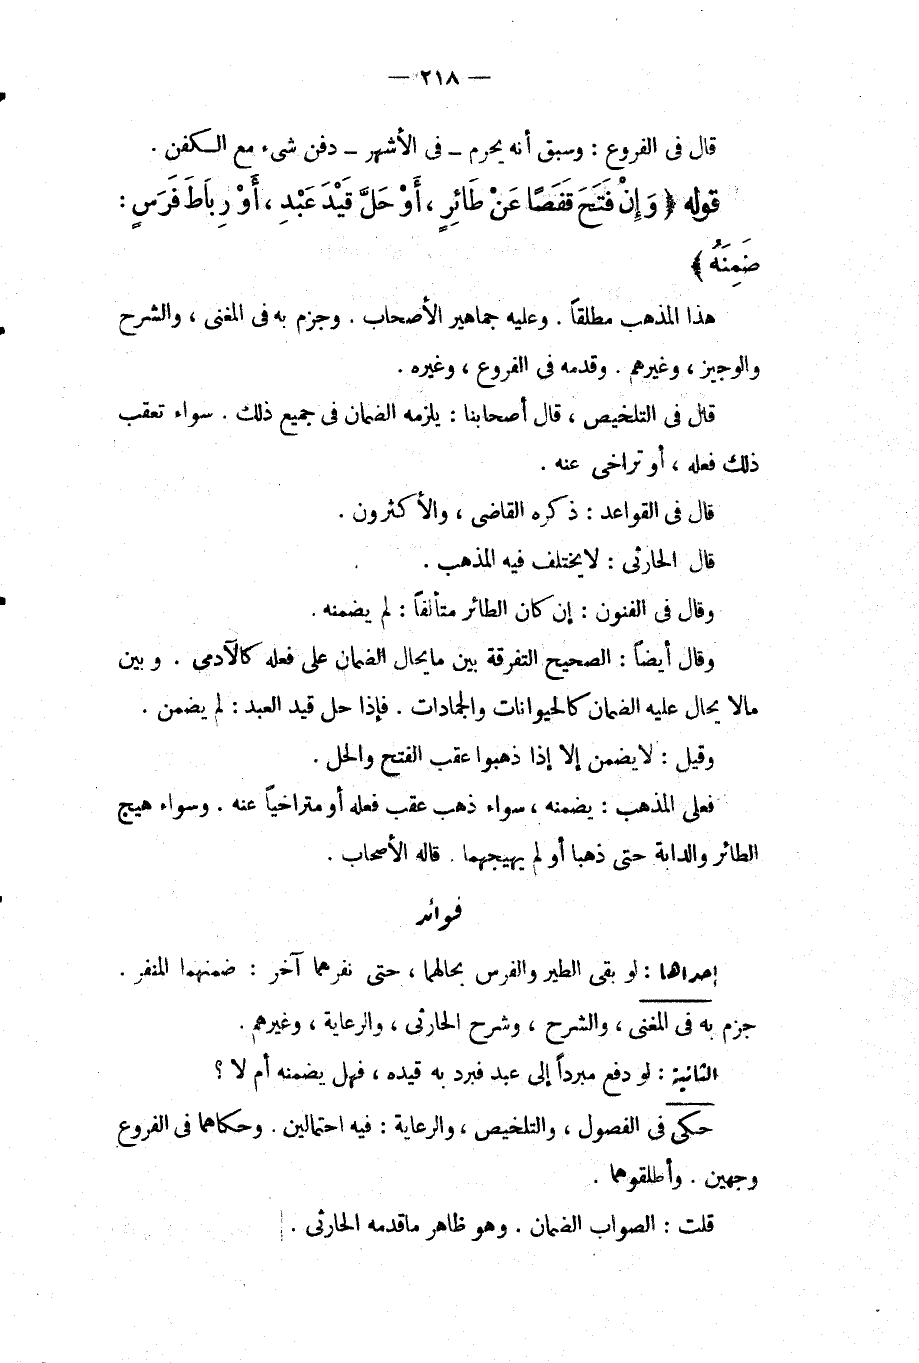 — ٢١٨ —
قال فى الفروع : وسبق أنه يحرم – فى الأشهر – دفن شىء مع الكفن .
قوله ﴿ وَإِنْ فَتَحَ قَفَصًا عَنْ طَائِرٍ ، أَوْ حَلَّ قَيْدَ عَبْدٍ ، أَوْ رِبَاطَ فَرَسٍ :
ضَمِنَهُ ﴾
هذا المذهب مطلقاً . وعليه جماهير الأصحاب . وجزم به فى المغنى ، والشرح
والوجيز ، وغيرهم . وقدمه فى الفروع ، وغيره .
قال فى التلخيص ، قال أصحابنا : يلزمه الضمان فى جميع ذلك . سواء تعقب
ذلك فعله ، أو تراخى عنه .
قال فى القواعد : ذكره القاضى ، والأكثرون .
قال الحارثى : لا يختلف فيه المذهب .
وقال فى الفنون : إن كان الطائر متألفاً : لم يضمنه .
وقال أيضاً : الصحيح التفرقة بين ما يحال الضمان على فعله كالآدمى . و بين
مالا يحال عليه الضمان كالحيوانات والجمادات . فإذا حل قيد العبد : لم يضمن .
وقيل : لا يضمن إلا إذا ذهبوا عقب الفتح والحل .
فعلى المذهب : يضمنه ، سواء ذهب عقب فعله أو متراخياً عنه . وسواء هيج
الطائر والدابة حتى ذهبا أو لم يهيجهما . قاله الأصحاب .
فوائد
إحداها : لو بقى الطير والفرس بحالهما ، حتى نفرهما آخر : ضمنهما المنفر .
جزم به فى المغنى ، والشرح ، وشرح الحارثى ، والرعاية ، وغيرهم .
الثانية : لو دفع مبرداً إلى عبد فبرد به قيده ، فهل يضمنه أم لا ؟
حكى فى الفصول ، والتلخيص ، والرعاية : فيه احتمالين . وحكاهما فى الفروع
وجهين . وأطلقوهما .
قلت : الصواب الضمان . وهو ظاهر ماقدمه الحارثى .